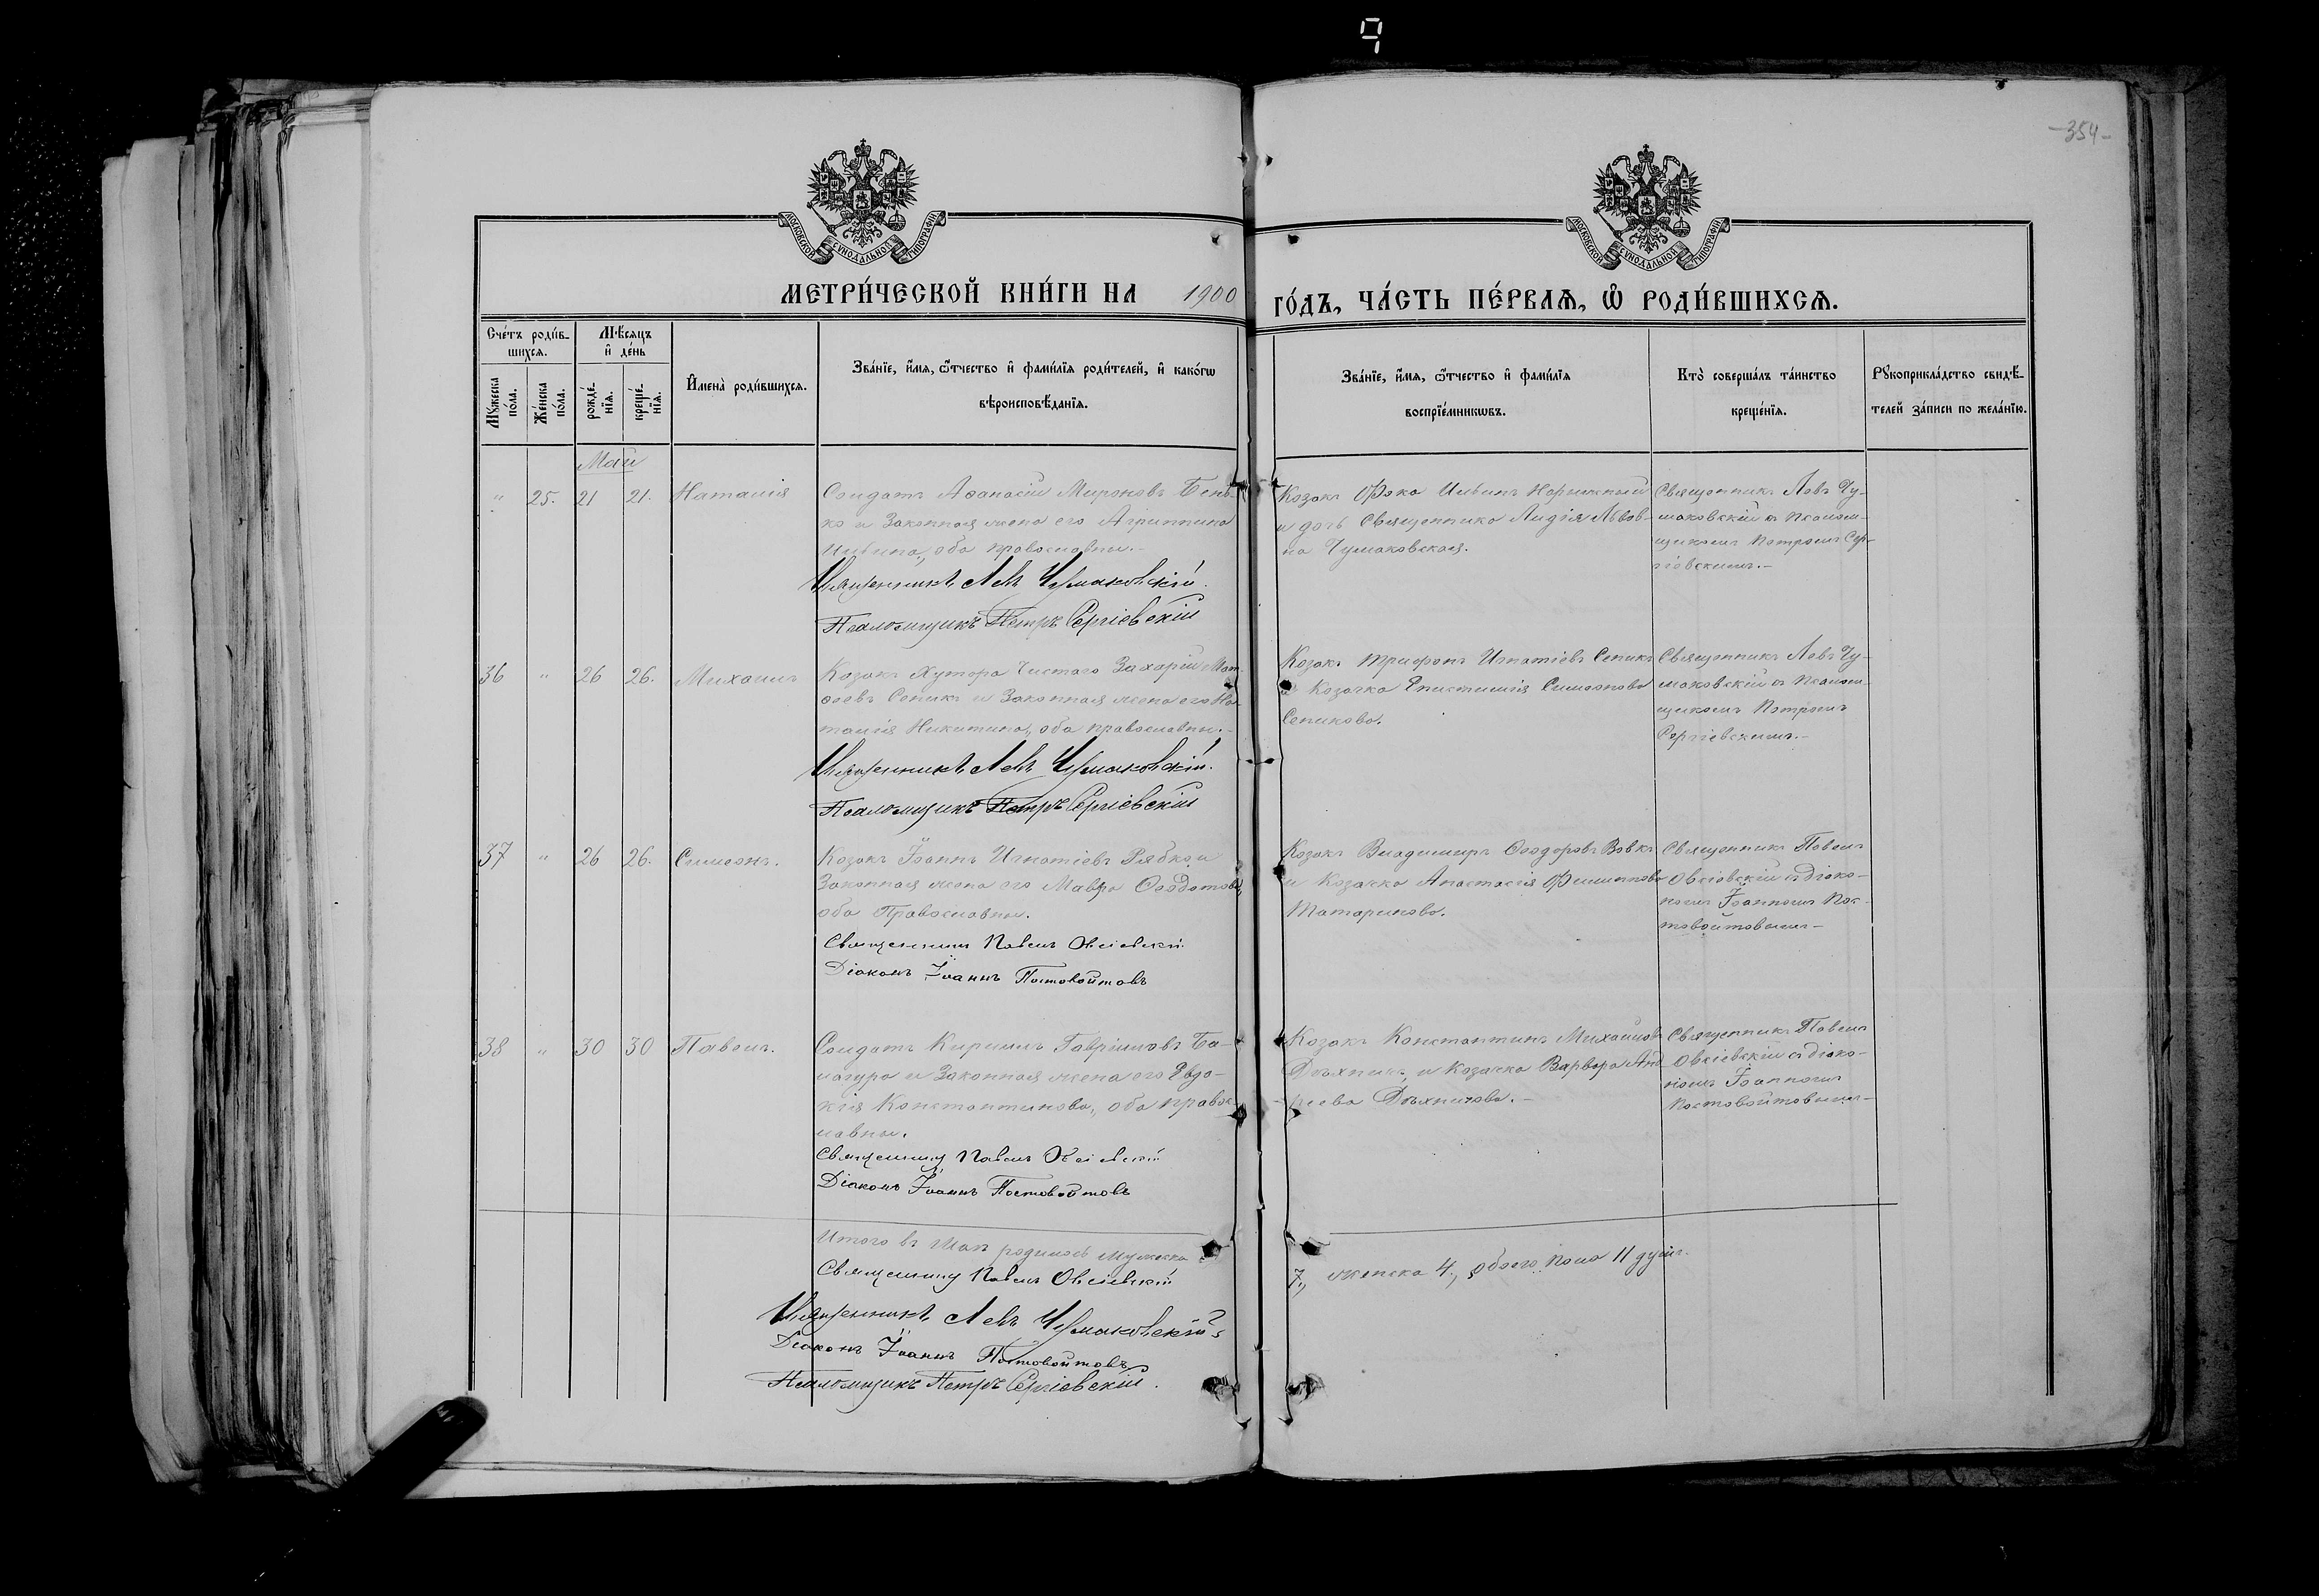 9
-354-
МОСКОВСКОЙ СѴНОДАЛЬНОЙ ТИПОГРАФІИ
МОСКОВСКОЙ СѴНОДАЛЬНОЙ ТИПОГРАФІИ
МЕТРИ́ЧЕСКОЙ КНИ́ГИ НА 1900 ГО́ДЪ, ЧА́СТЬ ПЕ́РВАѦ, Ѡ҆ РОДИ́ВШИХСѦ.
Сче́тъ роди́в-
шихсѧ.
Мѣ́сяцъ
и҆ де́нь
Мꙋ́жеска
по́ла.
Же́нска
по́ла.
рожде́-
нїѧ.
креще́-
нїѧ.
И҆мена̀ роди́вшихсѧ.
Зва́нїе, и҆́мѧ, ѻ҆́тчество и҆ фами́лїѧ роди́телей, и҆ како́гѡ
вѣроисповѣ́данїѧ.
Зва́нїе, и҆́мѧ, ѻ҆́тчество и҆ фами́лїѧ
воспрїе́мникѡвъ.
Кто̀ соверша́лъ та́инство
креще́нїѧ.
Рꙋкоприкла́дство свидѣ́-
телей за́писи по жела́нїю.
Май
" 25. 21 21. Наталія
Солдатъ Аѳанасій Мироновъ Бень-
ко и Законная жена его Агриппина
Ильина, оба православны.-
Священникъ Левъ Чумаковскій.
Псаломщикъ Петръ Сергіевскій
Козакъ Фока Ильинъ Нарыжный
и дочь Священника Лидія Львов-
на Чумаковская.
Священникъ Левъ Чу-
маковскій съ псалом-
щикомъ Петромъ Сер-
гіевскимъ.-
36 " 26 26. Михаилъ
Козакъ Хутора Чистаго Захарій Мат-
ѳеевъ Сепикъ и Законная жена его На-
талія Никитина, оба православны.-
Священникъ Левъ Чумаковскій.
Псаломщикъ Петръ Сергіевскій
Козакъ Трифонъ Игнатіевъ Сепикъ
и Козачка Епистимія Симеонова
Сепикова.
Священникъ Левъ Чу-
маковскій съ псалом-
щикомъ Петромъ
Сергіевскимъ.-
37 " 26 26. Симеонъ.
Козакъ Іоаннъ Игнатіевъ Рябко и
Законная жена его Мавра Ѳеодотова,
оба Православны.
Священникъ Павелъ Овсіевскій
Діаконъ Іоаннъ Постовойтовъ
Козакъ Владимиръ Ѳеодоровъ Вовкъ
и Козачка Анастасія Филиппова
Татаринова.
Священникъ Павелъ
Овсіевскій съ діако-
номъ Іоанномъ Пос-
товойтовымъ-
38 " 30 30 Павелъ.
Солдатъ Кириллъ Гавріиловъ Ба-
лагура и Законная жена его Евдо-
кія Константинова, оба правос-
лавны.
Священникъ Павелъ Овсіевскій
Діаконъ Іоаннъ Постовойтовъ
Козакъ Константинъ Михаиловъ
и Козачка Варвара Анд-
реева
Священникъ Павелъ
Овсіевскій съ діако-
номъ Іоанномъ
Постовойтовымъ-
Итого въ Маѣ родилось мужеска
7., женска 4., обоего пола 11 душъ.
Священникъ Павелъ Овсіевскій
Священникъ Левъ Чумаковскій
Діаконъ Іоаннъ Постовойтовъ
Псаломщикъ Петръ Сергіевскій.